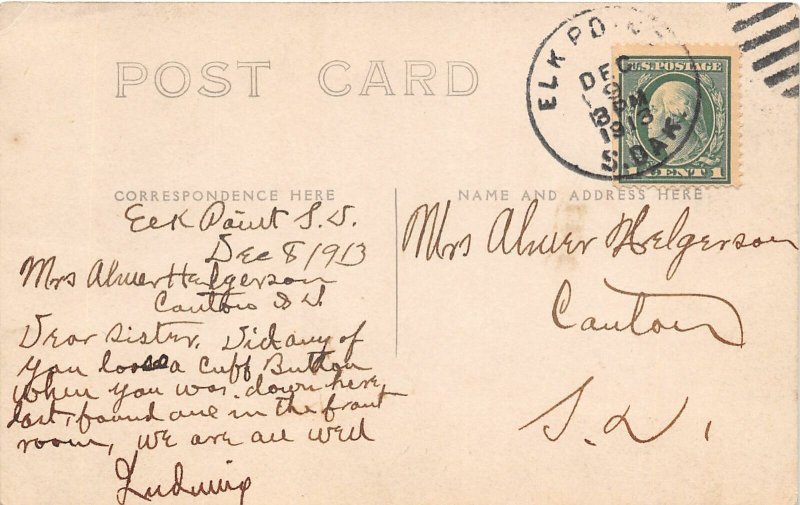 POST CARD
ELK POINT
DEC
9
3PM
1913
S. DAK.
U.S. POSTAGE
CENT 1
CORRESPONDENCE HERE
NAME AND ADDRESS HERE
Elk Point S.D.
Dec 8/1913
Mrs Helgerson
Canton S D
Dear Sister, Did any of
you loose a Cuff Button
when you was down here
last, found one in the front
room, we are all well
Ludwig
Mrs Helgerson
Canton
S.D.